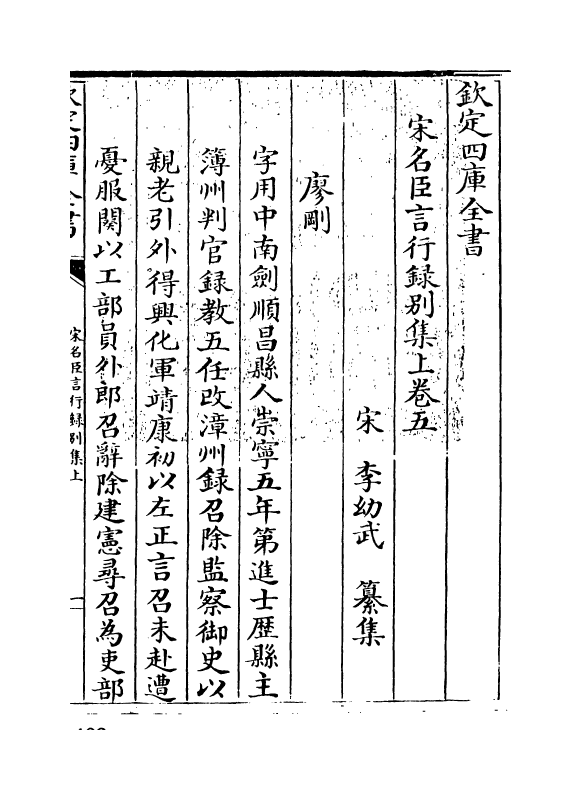 欽定四庫全書
宋名臣言行録别集上卷五
宋 李幼武 纂集
廖剛
字用中南劍順昌縣人崇寧五年第進士歴縣主
簿州判官録教五任改漳州録召除監察御史以
親老引外得興化軍靖康初以左正言召未赴遭
憂服闋以工部員外郎召辭除建憲尋召為吏部
欽定四庫全書
宋名臣言行録别集上
一